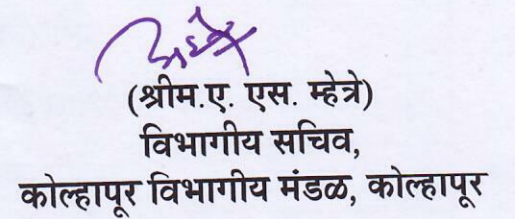 (श्रीम.ए. एस. म्हेत्रे)
विभागीय सचिव,
कोल्हापूर विभागीय मंडळ, कोल्हापूर